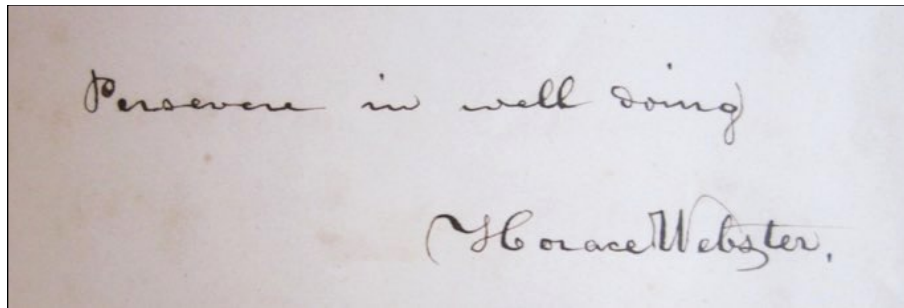 Persevere in well doing
Horace Webster.